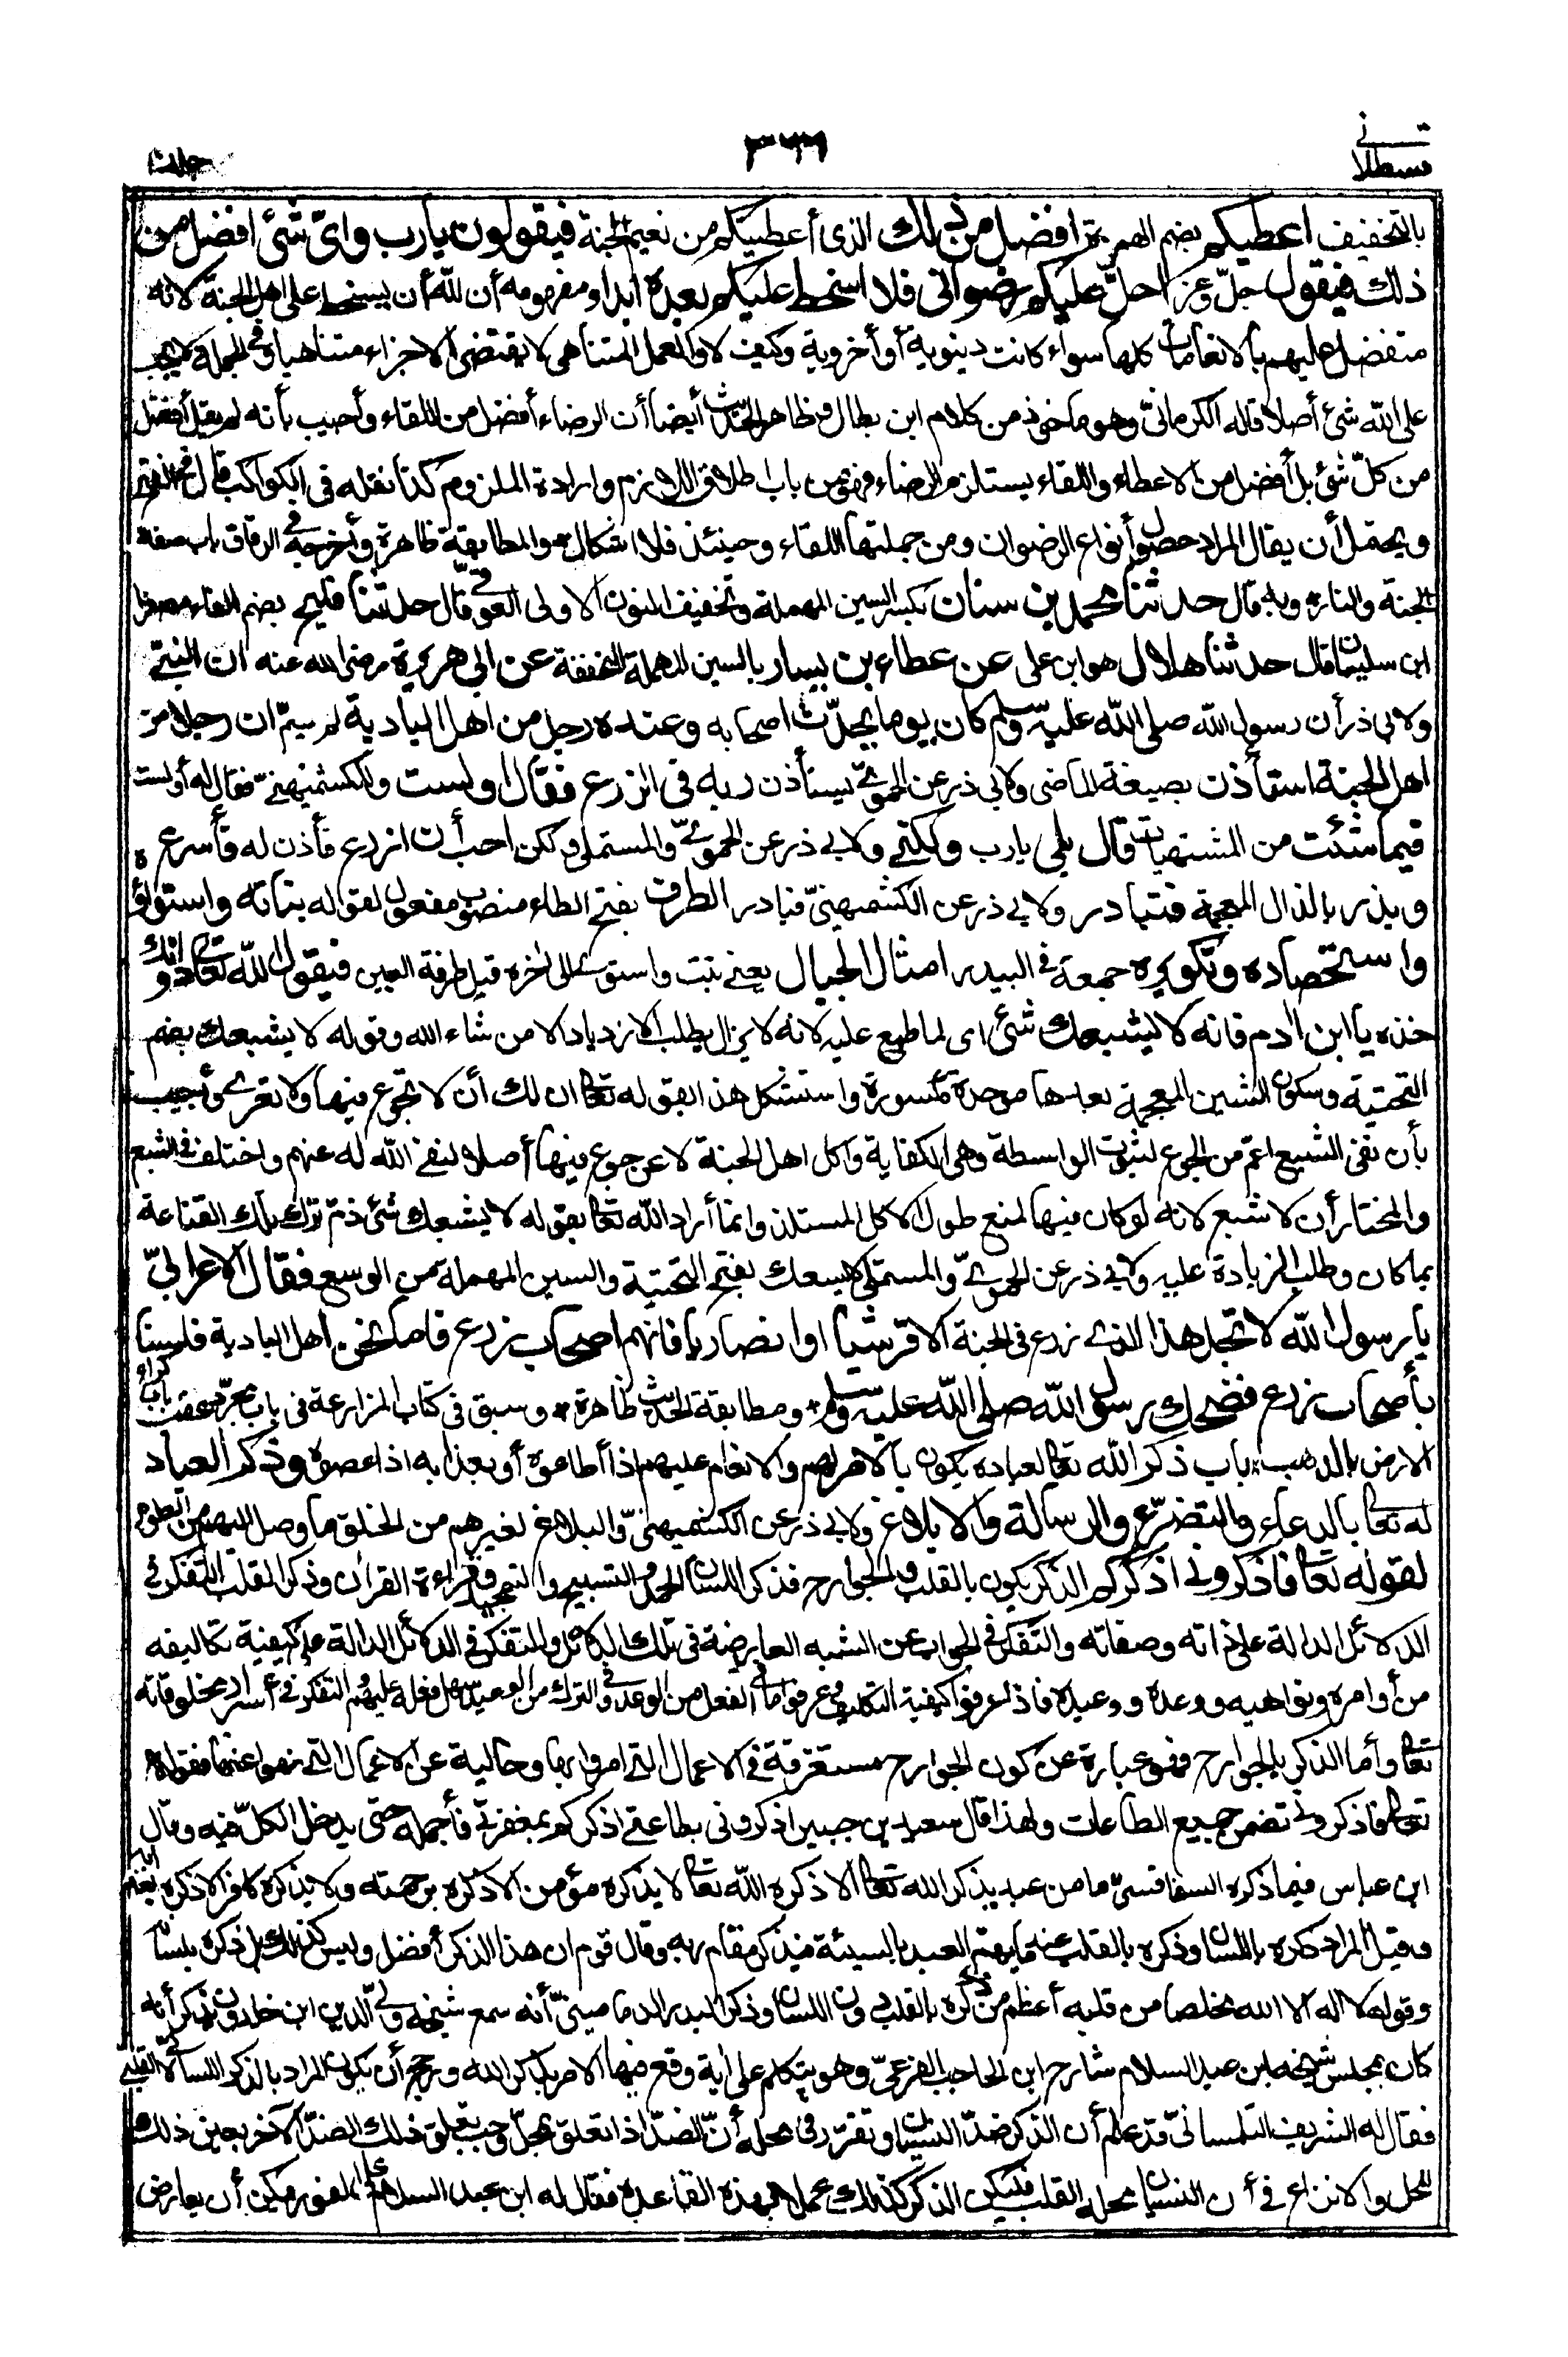 قسطلانى
٣٦٦
جلد
بالتخفيف اعطيكم بضم الهمزة افضل من ذلك الذى أعطيتكم من نعيم الجنة فيقولون يارب واىّ شئ افضل من
ذلك فيقول جلّ وعز احلّ عليكم رضوانى فلا اسخط عليكم بعده ابدا ومفهومه أن لله أن يسخط على اهل الجنة لانه
متفضل عليهم بالانعامات كلها سواء كانت دينوية أو أخروية وكيف لا والعمل المتناهى لا يقتضى الا جزاء متناهيا وفى الجملة لا يجب
على الله شئ أصلا قاله الكرمانىّ وهو مأخوذ من كلام ابن بطال وظاهر الحديث أيضا أن الرضاء أفضل من اللقاء وأجيب بأنه لم يقل أفضل
من كلّ شئ بل أفضل من الاعطاء واللقاء يستلزم الرضاء فهو من باب اطلاق اللازم وارادة الملزوم كذا نقله فى الكواكب قال فى الفتح
ويحتمل أن يقال المراد حصول أنواع الرضوان ومن جملتها اللقاء وحينئذ فلا اشكال * والمطابقة ظاهرة وأخرجه فى الرقاق باب صفة
الجنة والنار * وبه قال حدثنا محمد بن سنان بكسر السين المهملة وتخفيف النون الاولى العوقىّ قال حدثنا فليح بضم الفاء مصغرا
ابن سليمان قال حدثنا هلال هو ابن على عن عطاء بن يسار بالسين المهملة المخففة عن ابى هريرة رضى الله عنه ان النبىّ
ولابى ذر أن رسول الله صلى الله عليه وسلم كان يوما يحدّث اصحابه وعنده رجل من اهل البادية لم يسمّ ان رجلا من
اهل الجنة استأذن بصيغة الماضى ولابى ذر عن الحموىّ يستأذن ربه فى الزرع فقال اولست وللكشميهنىّ فقال له أولست
فيما شئت من المشتهيات قال بلى يارب ولكنى ولابى ذر عن الحموىّ والمستملى ولكن احب أن ازرع فأذن له فأسرع
وبذر بالذال المعجمة فتبادر ولابى ذر عن الكشميهنىّ فبادر الطرف بفتح الطاء منصوب مفعول لقوله نباته واستواؤه
واستحصاده وتكويره جمعه فى البيدر امثال الجبال يعنى نبت واستوى الى اخره قبل طرفة العين فيقول الله تعالى دونك
خذه يا ابن ادم فانه لا يشبعك شئ اى لما طبع عليه لانه لا يزال يطلب الازدياد الا من شاء الله وقوله لا يشبعك بضم
التحتية وسكون الشين المعجمة بعدها موحدة مكسورة واستشكل هذا بقوله تعالى ان لك أن لا تجوع فيها ولا تعرى وأجيب
بأن نفى الشبع اعمّ من الجوع لثبوت الواسطة وهى الكفاية واكل اهل الجنة لا عن جوع فيها أصلا لنفى الله له عنهم واختلف فى الشبع
والمختار أن لا شبع لانه لو كان فيها لمنع طول الاكل المستلذ وانما أراد الله تعالى بقوله لا يشبعك شئ ذمّ ترك تلك القناعة
بما كان وطلب الزيادة عليه ولابى ذر عن الحموىّ والمستملى لا يسعك بفتح التحتية والسين المهملة من الوسع فقال الاعرابىّ
يا رسول الله لا تجد هذا الذى زرع فى الجنة الا قرشيا او انصاريا فانهم اصحاب زرع فاما نحن اهل البادية فلسنا
بأصحاب زرع فضحك رسول الله صلى الله عليه وسلم * ومطابقة الحديث ظاهرة * وسبق فى كتاب المزارعة فى باب مجرّد عقب باب كراء
الارض بالذهب * باب ذكر الله تعالى لعباده يكون بالامر لهم والانعام عليهم اذا أطاعوه أو بعذابه اذا عصوه وذكر العباد
له تعالى بالدعاء والتضرّع والرسالة والابلاغ ولابى ذر عن الكشميهنىّ والبلاغ لغيرهم من الخلق ما وصل اليهم من العلوم
لقوله تعالى فاذكرونى اذكركم الذكر يكون بالقلب والجوارح فذكر اللسان الحمد والتسبيح والتمجيد وقراءة القرآن وذكر القلب التفكر فى
الدلائل الدالة على ذاته وصفاته والتفكر فى الجواب عن الشبه العارضة فى تلك الدلائل والتفكر فى الدلائل الدالة على كيفية تكاليفه
من أوامره ونواهيه ووعده ووعيده فاذا عرفوا كيفية التكليف وعرفوا ما فى الفعل من الوعد وفى الترك من الوعيد سهل فعله عليهم والتفكر فى أسرار مخلوقاته
تعالى وأما الذكر بالجوارح فهو عبارة عن كون الجوارح مستغرقة فى الاعمال التى امروا بها وخالية عن الاعمال التى نهوا عنها فقوله
تعالى فاذكرونى تضمن جميع الطاعات ولهذا قال سعيد بن جبير اذكرونى بطاعتى اذكركم بمغفرتى فأجمله حتى يدخل الكلّ فيه وقال
ابن عباس فيما ذكره السفاقسىّ ما من عبد يذكر الله تعالى الا ذكره الله تعالى لا يذكره مؤمن الا ذكره برحمته ولا يذكره كافر الا ذكره بعذابه
وقيل المراد ذكره باللسان وذكره بالقلب عند ما يهمّ العبد بالسيئة فيذكر مقام ربه وقال قوم ان هذا الذكر أفضل وليس كذلك بل ذكره بلسانه
وقوله لا اله الا الله مخلصا من قلبه أعظم من ذكره بالقلب دون اللسان وذكر البدر الدمامينىّ أنه سمع شيخه ولىّ الدين ابن خلدون يذكر أنه
كان بمجلس شيخه ابن عبد السلام شارح ابن الحاجب الفرعىّ وهو يتكلم على اية وقع فيها الامر بذكر الله ورجح أن يكون المراد بالذكر اللسانىّ لا القلبىّ
فقال له الشريف التلمسانىّ قد علم أن الذكر ضدّ النسيان وتقرّر فى محله أنّ الضدّ اذا تعلق بمحلّ وجب تعلق ذلك الضدّ الآخر بعين ذلك
المحل ولا نزاع فى أن النسيان محله القلب فليكن الذكر كذلك عملا بهذه القاعدة فقال له ابن عبد السلام على الفور يمكن أن يعارض